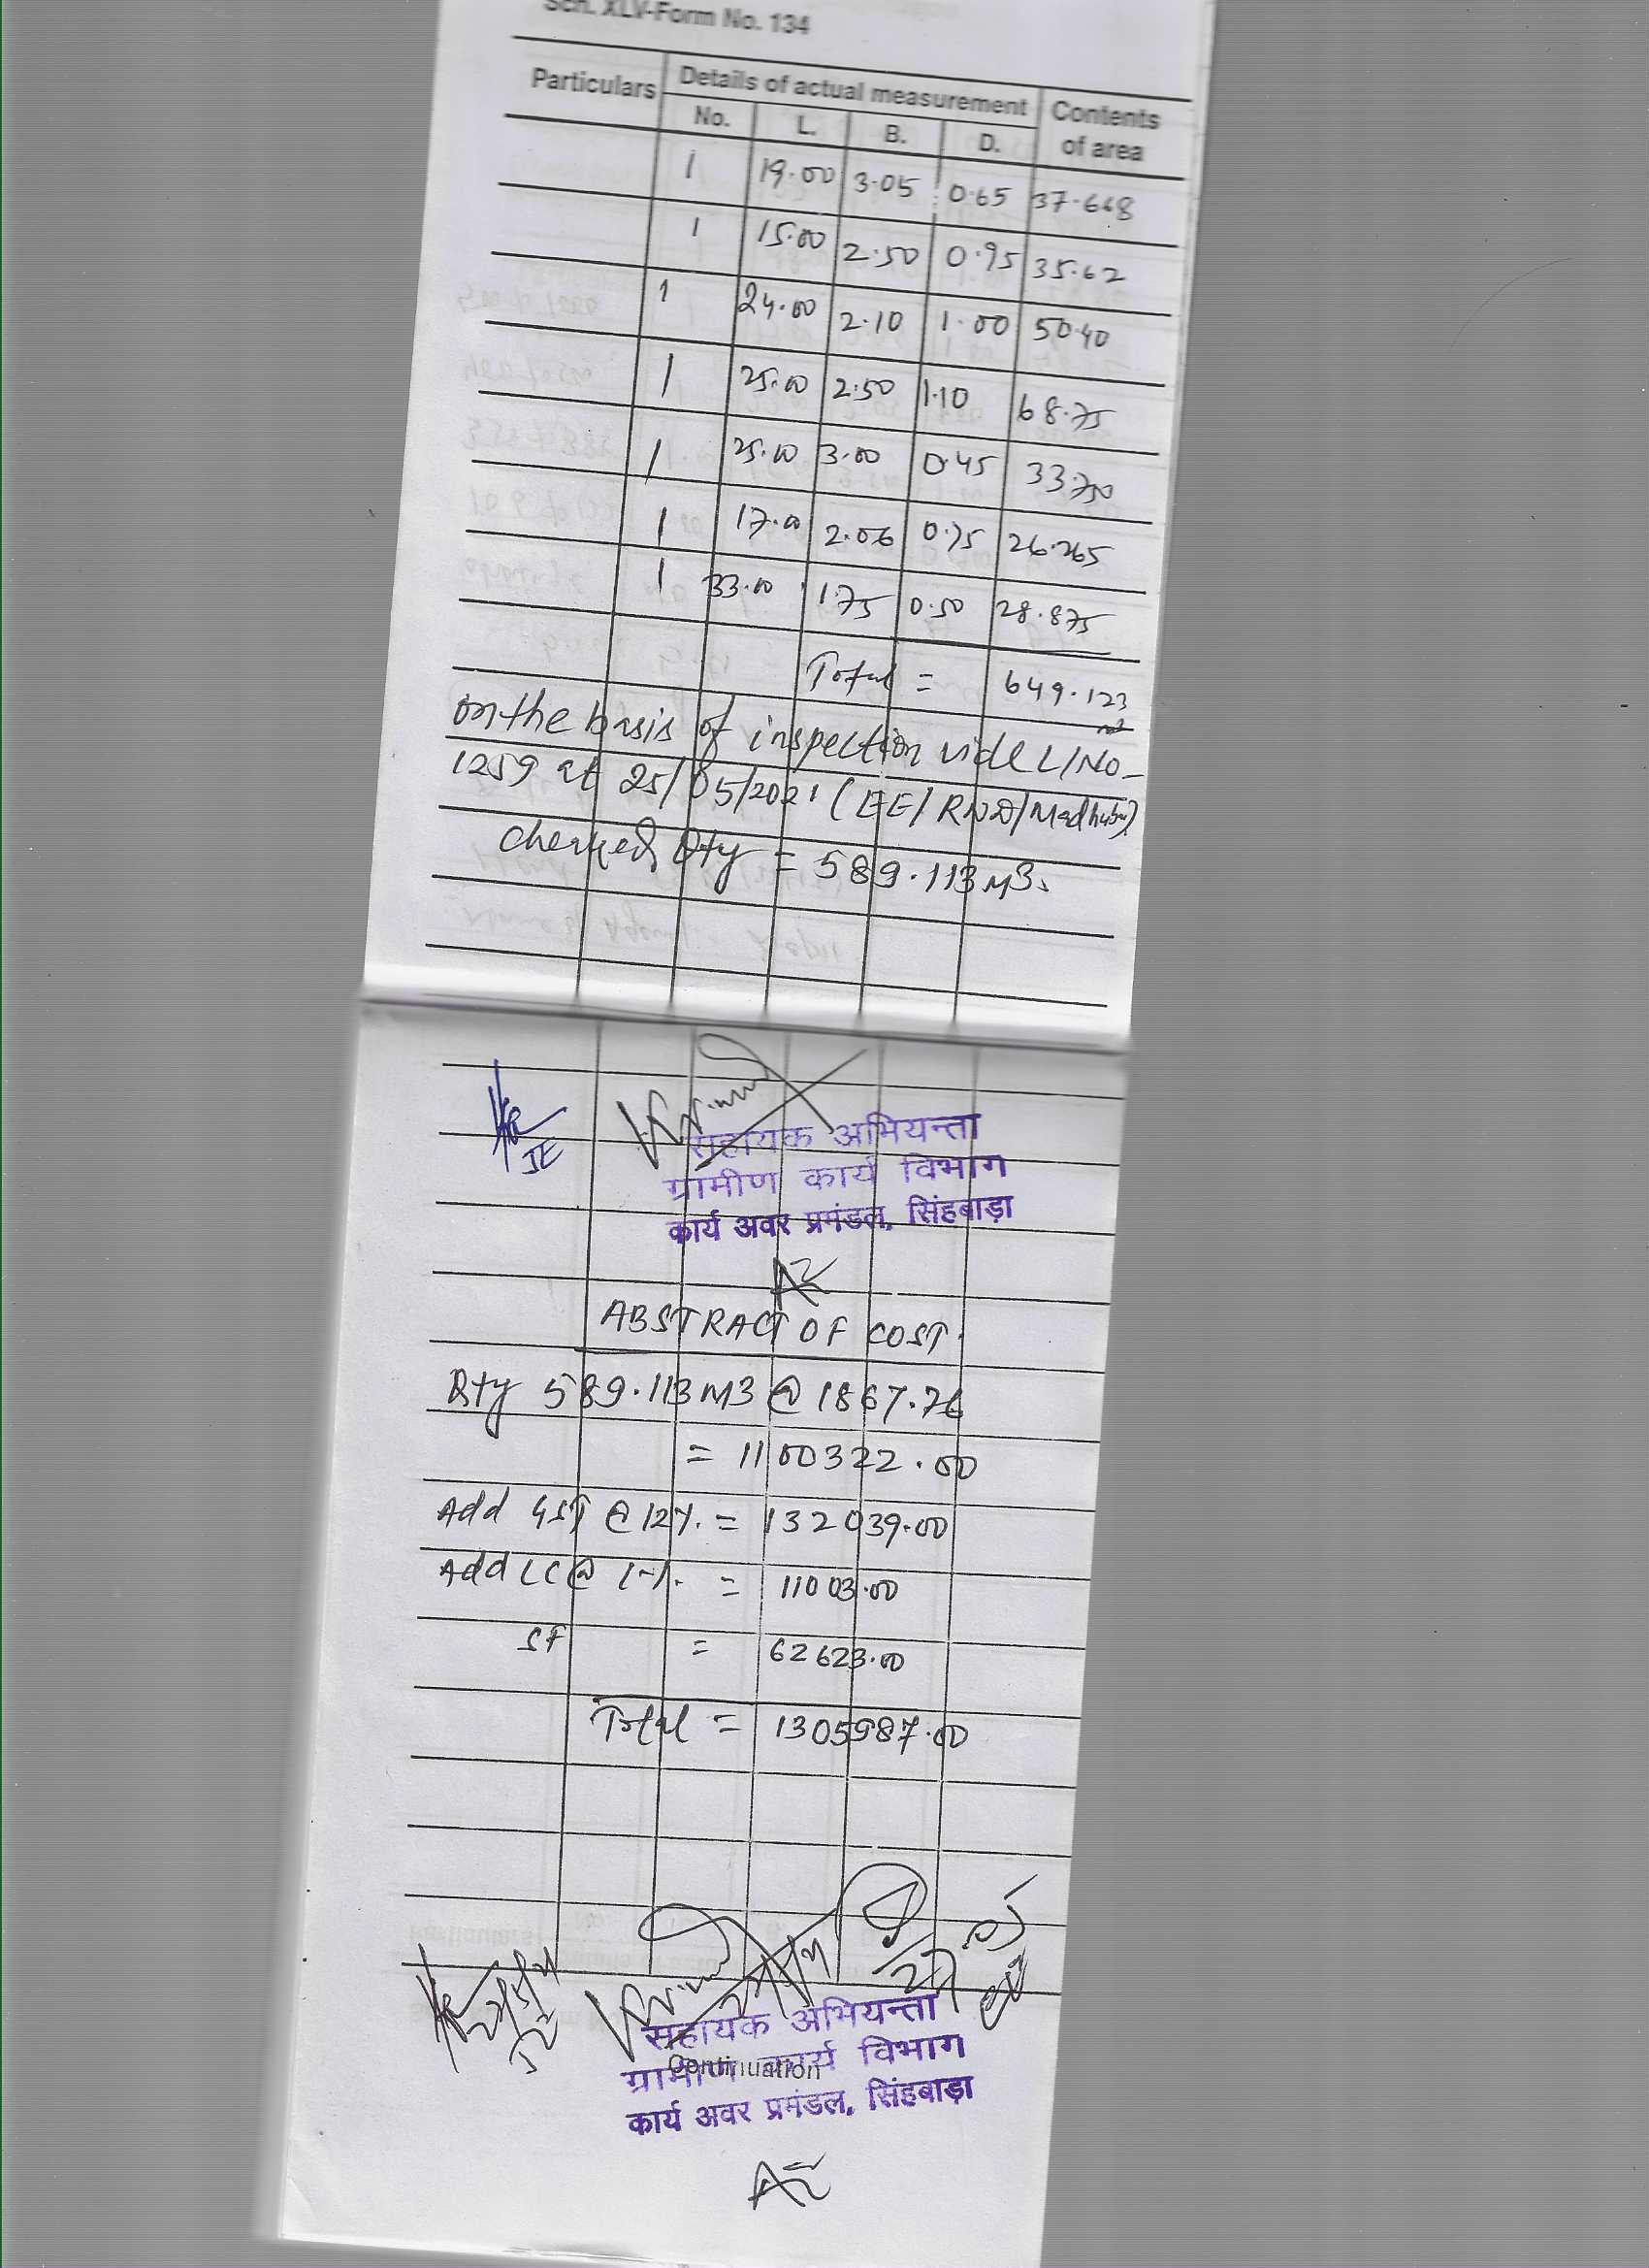 Sch. XLV-Form No. 134
Particulars Details of actual measurement Contents of area
No. L. B. D.
1 19.00 3.05 0.65 37.668
1 15.00 2.50 0.95 35.62
1 24.00 2.10 1.00 50.40
1 25.00 2.50 1.10 68.75
1 25.00 3.00 0.45 33.750
1 17.00 2.06 0.75 26.265
1 33.00 1.75 0.50 28.875
Total = 649.123
m3
on the basis of inspection vide L/No-
1259 at 25/05/2021 (EE/RWD/Madhubani)
Checked Qty = 589.113 M3.
JE
सहायक अभियन्ता
ग्रामीण कार्य विभाग
कार्य अवर प्रमंडल, सिंहबाड़ा
AE
ABSTRACT OF COST.
Qty 589.113 M3 @ 1867.76
= 1100322.00
Add GST @ 12%. = 132039.00
Add LC @ 1%. = 11003.00
SF = 62623.00
Total = 1305987.00
JE
सहायक अभियन्ता
ग्रामीण कार्य विभाग
Continuation
कार्य अवर प्रमंडल, सिंहबाड़ा
AE